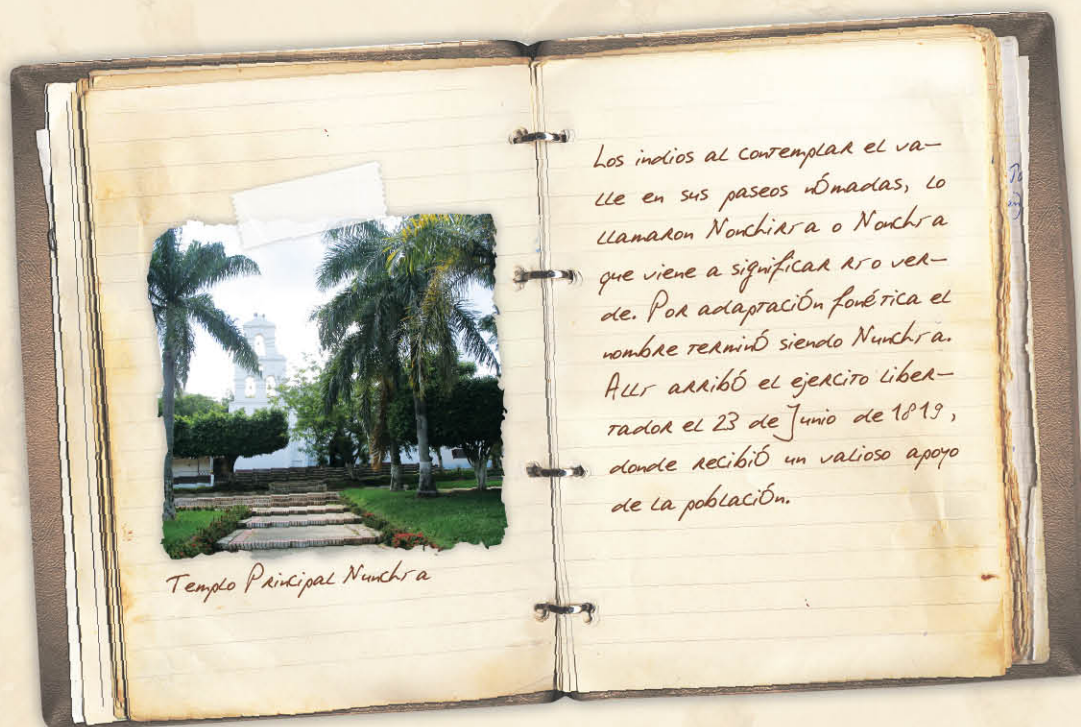 Templo Principal Nunchía
Los indios al contemplar el va-
lle en sus paseos nómadas, lo
llamaron Nonchiría o Nonchía
que viene a significar río ver-
de. Por adaptación fonética el
nombre terminó siendo Nunchía.
Allí arribó el ejercito liber-
tador el 23 de Junio de 1819,
donde recibió un valioso apoyo
de la población.